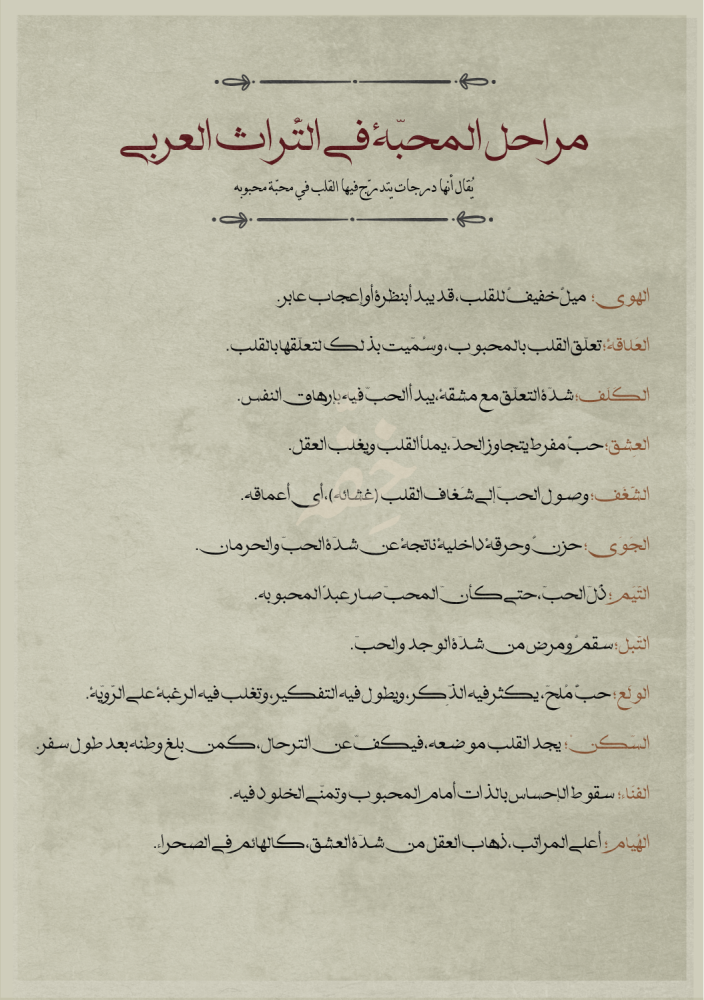 مراحل المحبّة في التُّراث العربي
يُقال أنها درجات يتدرّج فيها القلب في محبّة محبوبه
الهوى؛ ميلٌ خفيفٌ للقلب، قد يبدأ بنظرة أو إعجاب عابر.
العلاقة؛ تعلّق القلب بالمحبوب، وسُمّيت بذلك لتعلّقها بالقلب.
الكلف؛ شدّة التعلّق مع مشقة، يبدأ الحبّ فيه بإرهاق النفس.
العشق؛ حبٌّ مفرط يتجاوز الحدّ، يملأ القلب ويغلب العقل.
الشّغف؛ وصول الحبّ إلى شغاف القلب (غشائه)، أي أعماقه.
الجوى؛ حزنٌ وحرقة داخلية ناتجة عن شدّة الحبّ والحرمان.
التّيم؛ ذُلّ الحبّ، حتى كأنّ المحبّ صار عبدًا لمحبوبه.
التّبل؛ سقمٌ ومرض من شدّة الوجد والحبّ.
الولع؛ حبٌّ مُلحّ، يكثر فيه الذّكر، ويطول فيه التفكير، وتغلب فيه الرغبة على الرّويّة.
السّكن؛ يجد القلب موضعه، فيكفّ عن الترحال، كمن بلغ وطنه بعد طول سفر.
الفناء؛ سقوط الإحساس بالذات أمام المحبوب وتمنّي الخلود فيه.
الهُيام؛ أعلى المراتب، ذهاب العقل من شدّة العشق، كالهائم في الصحراء.